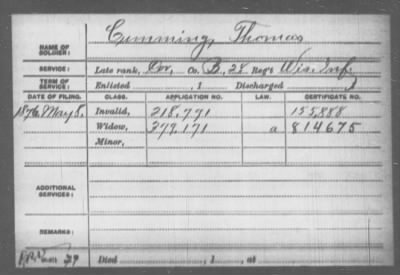 NAME OF SOLDIER: Cumming, Thomas
SERVICE: Late rank, Cor, Co. B, 28 Reg't Wis. Inf.
TERM OF SERVICE: Enlisted , 1 Discharged , 1
DATE OF FILING. CLASS. APPLICATION NO. LAW. CERTIFICATE NO.
1876, May 5. Invalid, 218.771 155,888
Widow, 377.171 a 814675
Minor,
ADDITIONAL SERVICES:
REMARKS:
Died , 1 , at